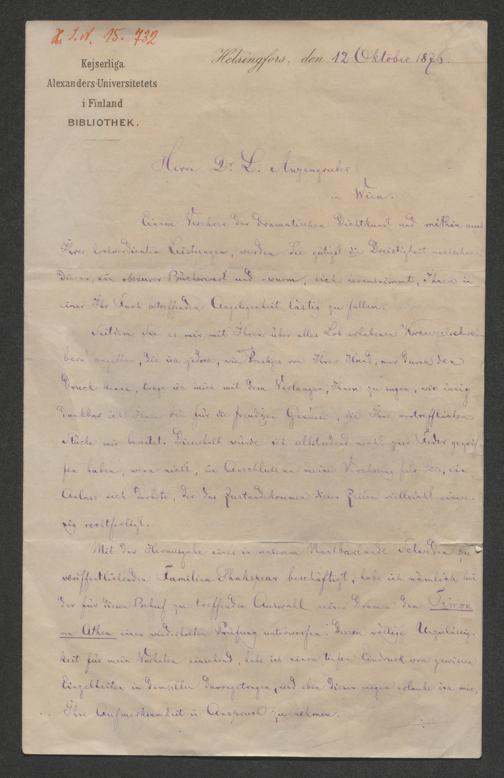 H. I. N. 15. 732
Kejserliga
Alexanders-Universitetets
i Finland
BIBLIOTHEK.
Helsingfors, den 12 Oktober 1876.
Herrn Dr L. Anzengruber
in Wien.
Einem Verehrer der dramatischen Dichtkunst und mithin auch
Ihrer Leistungen, werden Sie gütigst die Dreistigkeit
ein Bücherwart und -wurm, sich herausnimmt, Ihnen in
einer Ihr Fach betreffenden Angelegenheit lästig zu fallen.
Seitdem es mir mit Ihren über alles Lob erhabenen Kreuzelschrei-
bern die ich jedoch, wie von Ihrer Hand, nur durch den
Druck kenne, trage ich mich mit dem Verlangen, Ihnen zu sagen, wie innig
dankbar ich Ihnen bin für die freudigen Genüsse, die Ihre vortrefflichen
Stücke mir bereitet. Dieserhalb würde ich selbstredend nicht zur Feder gegrif-
fen haben, wenn nicht, im Anschluss an meine Verehrung für Sie, ein
Anlass sich darböte, der das Zustandekommen dieser Zeilen vielleicht einiger-
rechtfertigt.
Mit der Herausgabe eines in unserem Nachbarlande Schweden zu
veröffentlichenden Familien Shakespear beschäftigt, habe ich nämlich bei
der für diesen Behuf zu treffenden Auswahl seiner Dramen den Timon
von Athen einer wiederholten Prüfung unterworfen. Dessen völlige Unzulässig-
keit für mein Vorhaben einsehend, habe ich einen tiefen Eindruck von gewissen
Einzelheiten in demselben davongetragen, und eben dieser wegen erlaube ich mir,
Ihre Aufmerksamkeit in Anspruch zu nehmen.